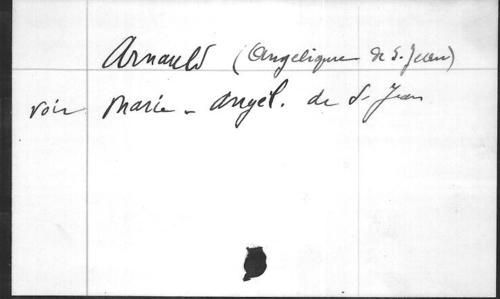 Arnauld (Angélique de S. Jean)
voir Marie - Angél. de S. Jean